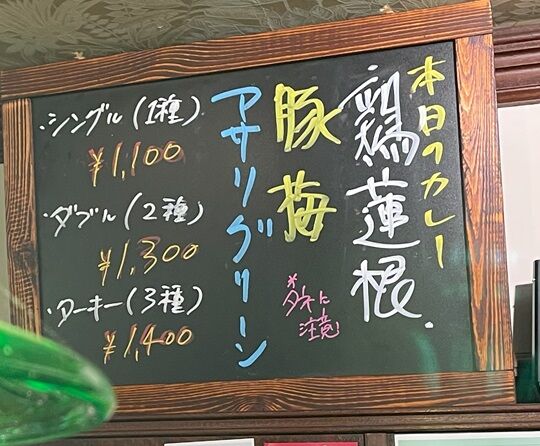 本日のカレー
鶏蓮根.
豚梅
*タネに
注意
アサリグリーン
・シングル(1種)
¥1,100
・ダブル(2種)
¥1,300
・アーキー(3種)
¥1,400